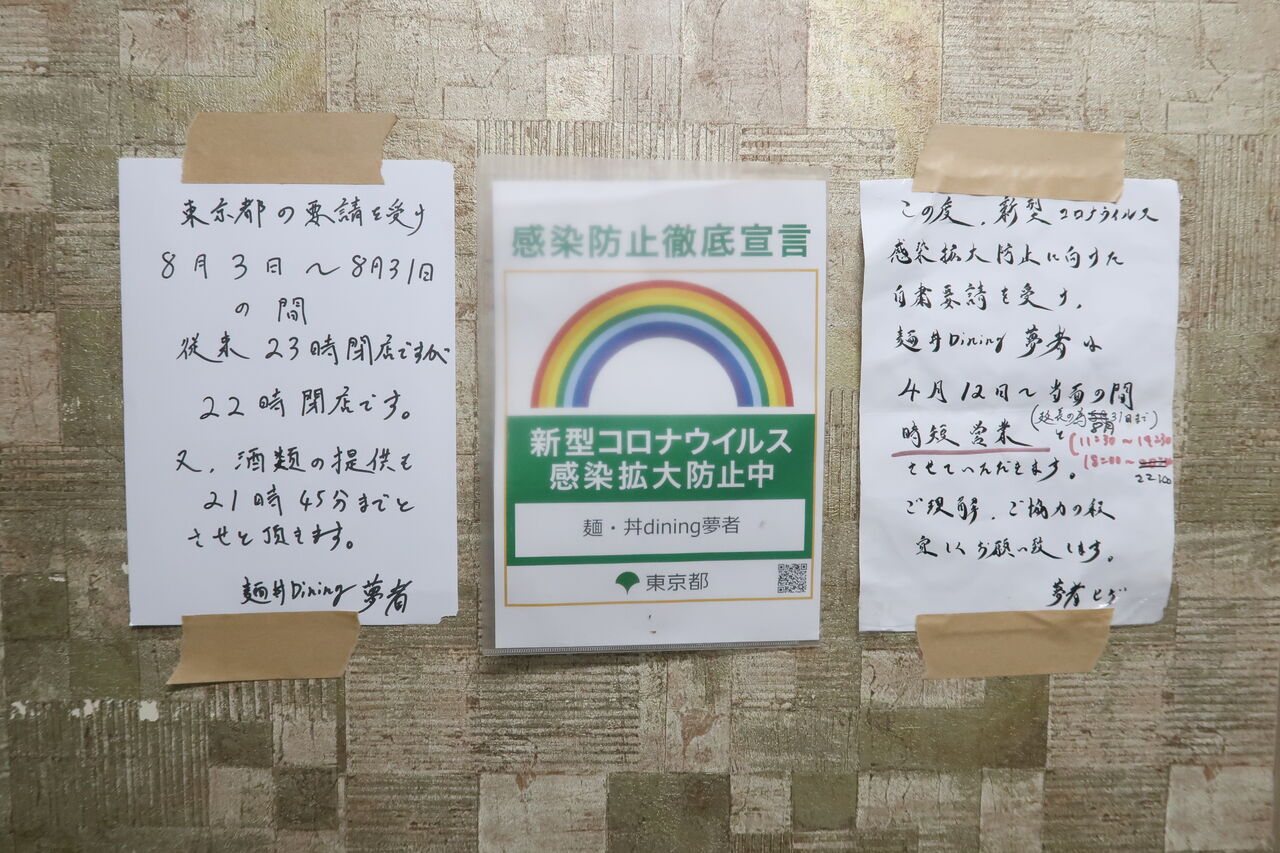 東京都の要請を受け
8月3日〜8月31日
の間
従来23時閉店ですが
22時閉店です。
又、酒類の提供も
21時45分までと
させて頂きます。
麺丼Dining 夢者
感染防止徹底宣言
新型コロナウイルス
感染拡大防止中
麺・丼dining夢者
東京都
この度、新型コロナウイルス
感染拡大防止に向けた
自粛要請を受け、
麺丼Dining 夢者は
4月12日〜当面の間
31日まで)
時短営業と
(11:30〜14:30
18:00〜
22:00
させていただきます。
ご理解、ご協力の程
宜しくお願い致します。
夢者